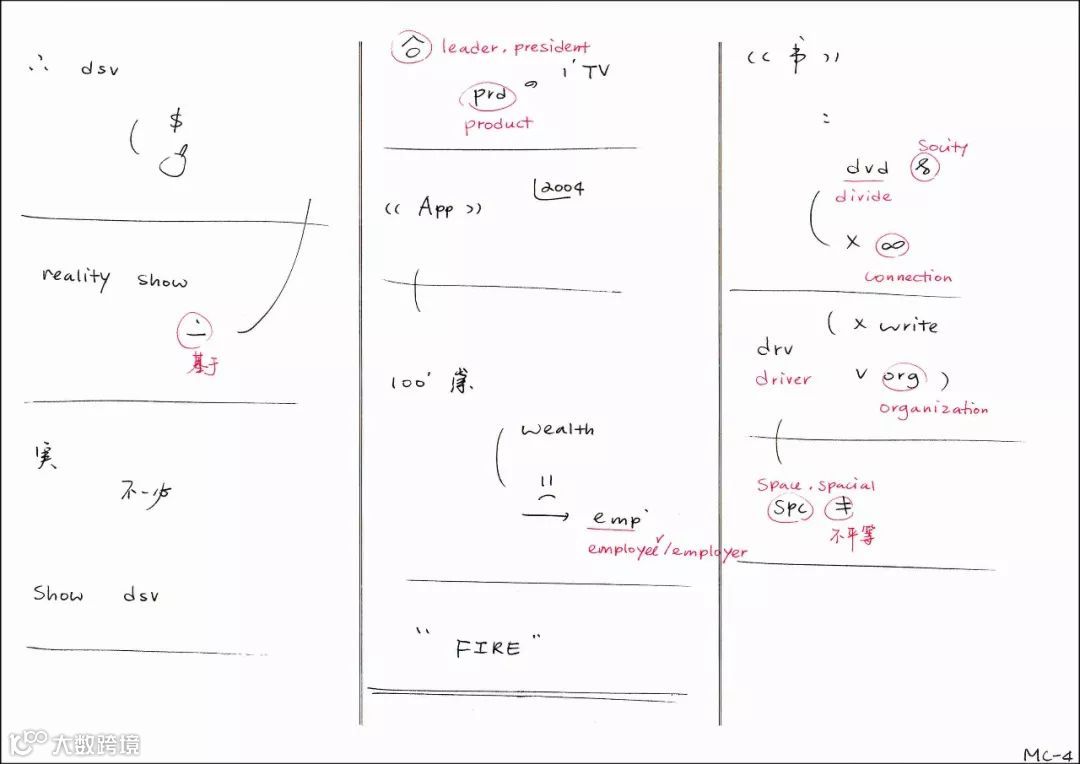 ∴ dsv
( $
reality show
基于
実
不一少
Show dsv
合 leader. president
i' TV
prd の
product
2004
《App》
100' 掌
( wealth
=
→ emp'
employee/employer
"FIRE"
《书》
:
Socity
dvd
divide
( × ∞
connection
( × write
drv
driver
v org )
organization
space. spacial
spc
不平等
大数跨境
MC-4